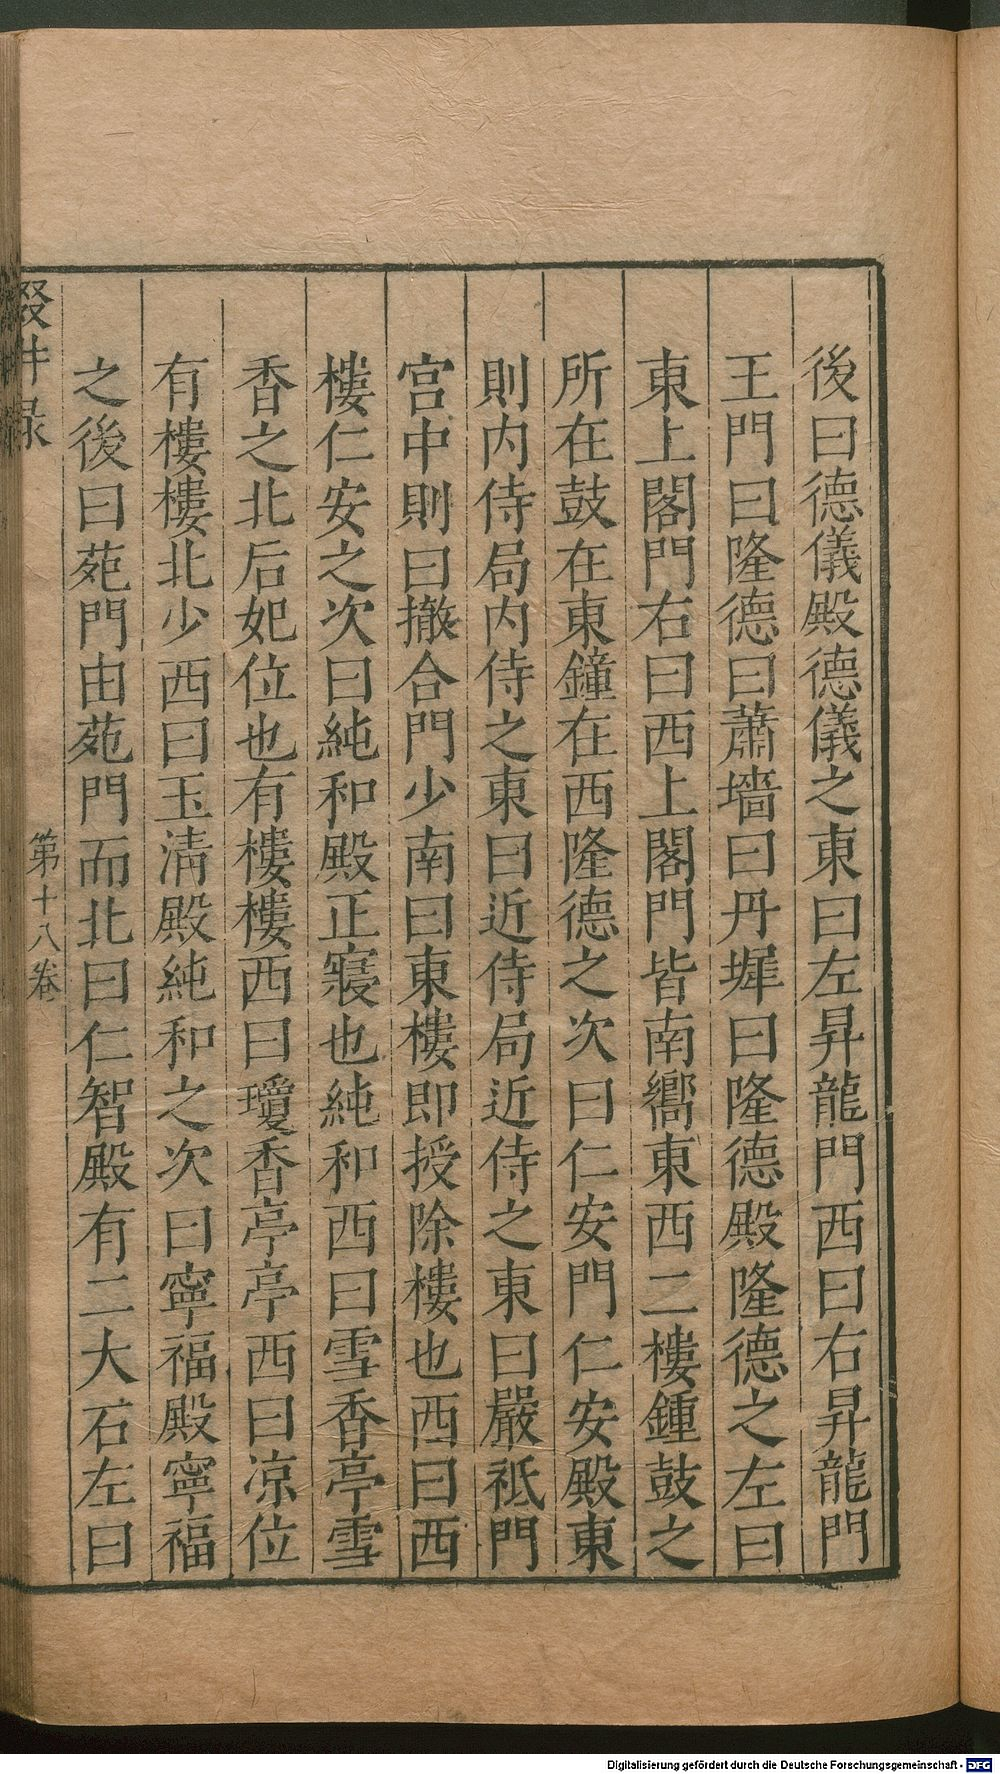 後曰德儀殿德儀之東曰左昇龍門西曰右昇龍門
王門曰隆德曰蕭墻曰丹墀曰隆德殿隆德之左曰
東上閣門右曰西上閣門皆南嚮東西二樓鍾鼓之
所在鼓在東鐘在西隆德之次曰仁安門仁安殿東
則内侍局内侍之東曰近侍局近侍之東曰嚴祗門
宫中則曰撤合門少南曰東樓即授除樓也西曰西
樓仁安之次曰純和殿正寢也純和西曰雪香亭雪
香之北后妃位也有樓樓西曰瓊香亭亭西曰凉位
有樓樓北少西曰玉清殿純和之次曰寧福殿寧福
之後曰苑門由苑門而北曰仁智殿有二大石左曰
輟畊録
第十八卷
Digitalisierung gefördert durch die Deutsche Forschungsgemeinschaft - DFG